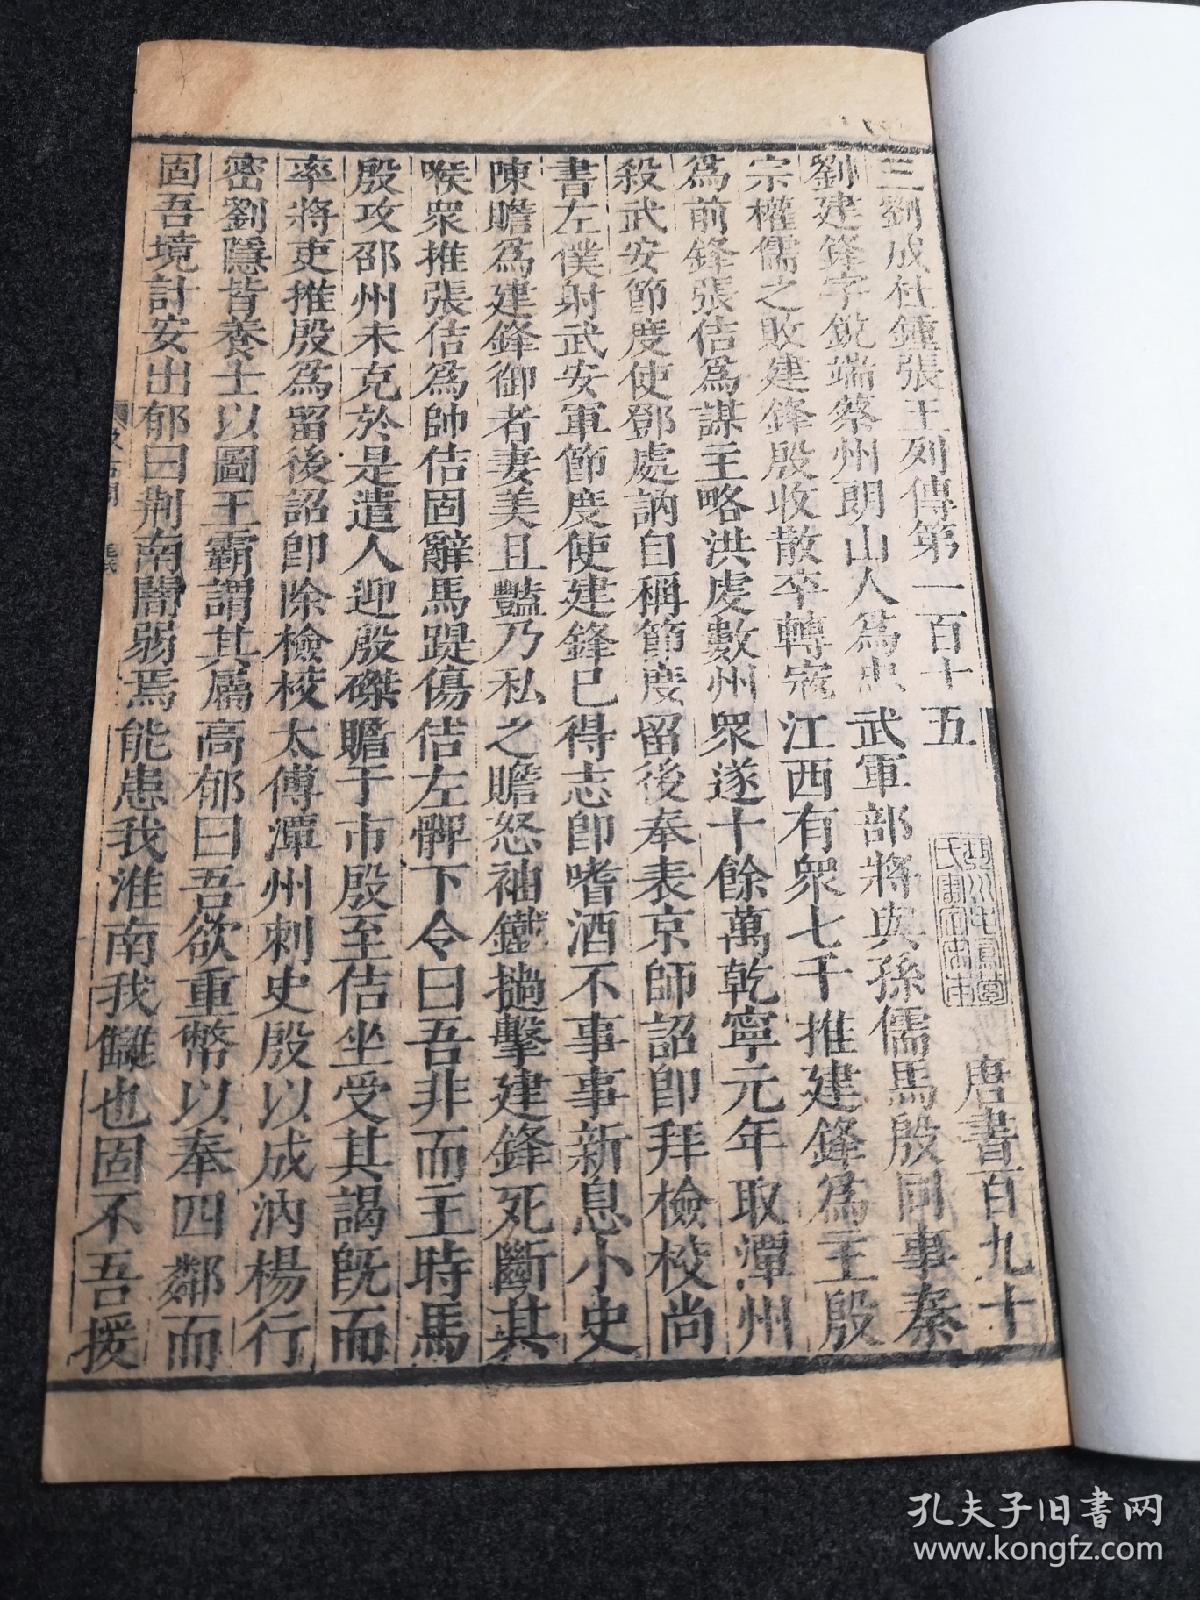 三劉成杜鍾張王列傳第一百十五 唐書百九十
劉建鋒字銳端蔡州朗山人為忠武軍部將與孫儒馬殷同事秦
宗權儒之敗建鋒殷收散卒轉寇江西有眾七千推建鋒為主殷
為前鋒張佶為謀主略洪虔數州眾遂十餘萬乾寧元年取潭州
殺武安節度使鄧處訥自稱節度留後奉表京師詔即拜檢校尚
書左僕射武安軍節度使建鋒已得志即嗜酒不事事新息小史
陳贍為建鋒御者妻美且豔乃私之贍怒袖鐵撾擊建鋒死斷其
喉眾推張佶為帥佶固辭馬踶傷佶左髀下令曰吾非而主時馬
殷攻邵州未克於是遣人迎殷磔贍于市殷至佶坐受其謁既而
率將吏推殷為留後詔即除檢校太傅潭州刺史殷以成汭楊行
密劉隱皆養士以圖王霸謂其屬高郁曰吾欲重幣以奉四鄰而
固吾境計安出郁曰荆南闇弱焉能患我淮南我讎也固不吾援
孔夫子旧书网
www.kongfz.com